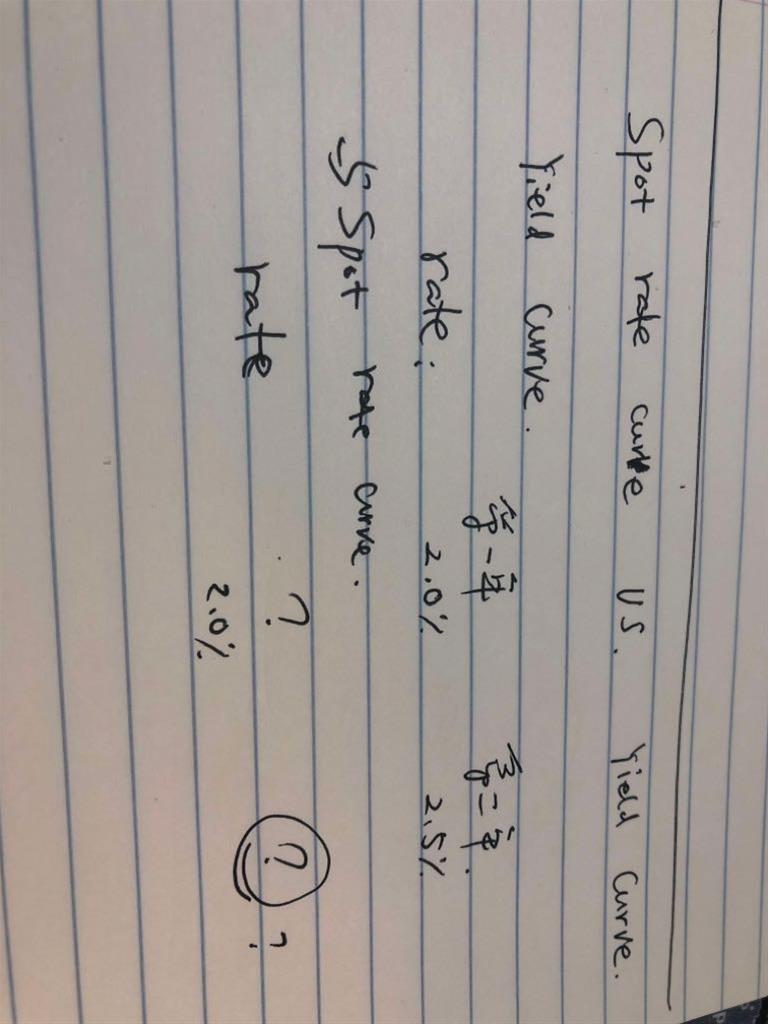 Spot rate curve VS. Yield Curve.
Yield curve.
第一年 第二年.
rate: 2.0% 2.5%
Spot rate curve.
rate ? ? ?
2.0%